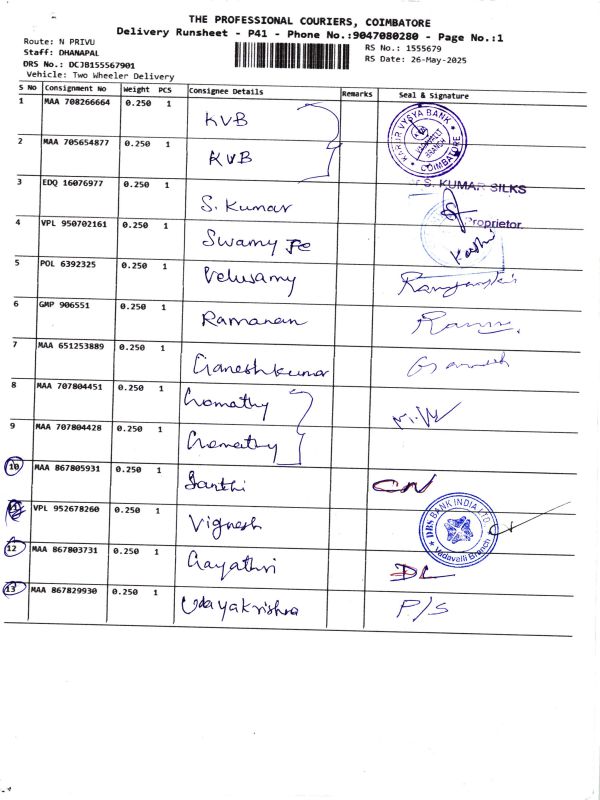 THE PROFESSIONAL COURIERS, COIMBATORE
Delivery Runsheet - P41 - Phone No.:9047080280 - Page No.:1
Route: N PRIVU
Staff: DHANAPAL
DRS No.: DCJB155567901
Vehicle: Two Wheeler Delivery
RS No.: 1555679
RS Date: 26-May-2025
S No Consignment No Weight PCS Consignee Details Remarks Seal & Signature
1 MAA 708266664 0.250 1 KVB KARUR VYSYA BANK COIMBATORE
2 MAA 705654877 0.250 1 KVB
3 EDQ 16076977 0.250 1 S. Kumar S. KUMAR SILKS
Proprietor
4 VPL 950702161 0.250 1 Swamy
5 POL 6392325 0.250 1 Velusamy
6 GMP 906551 0.250 1 Ramanan
7 MAA 651253889 0.250 1 Ganeshkumar Ganesh
8 MAA 707804451 0.250 1 Gomathy
9 MAA 707804428 0.250 1 Gomathy
10 MAA 867805931 0.250 1 Santhi CN
11 VPL 952678260 0.250 1 Vignesh DBS BANK INDIA LTD. Vadavalli Branch
12 MAA 867803731 0.250 1 Gayathri DL
13 MAA 867829930 0.250 1 Udayakrishna P/S